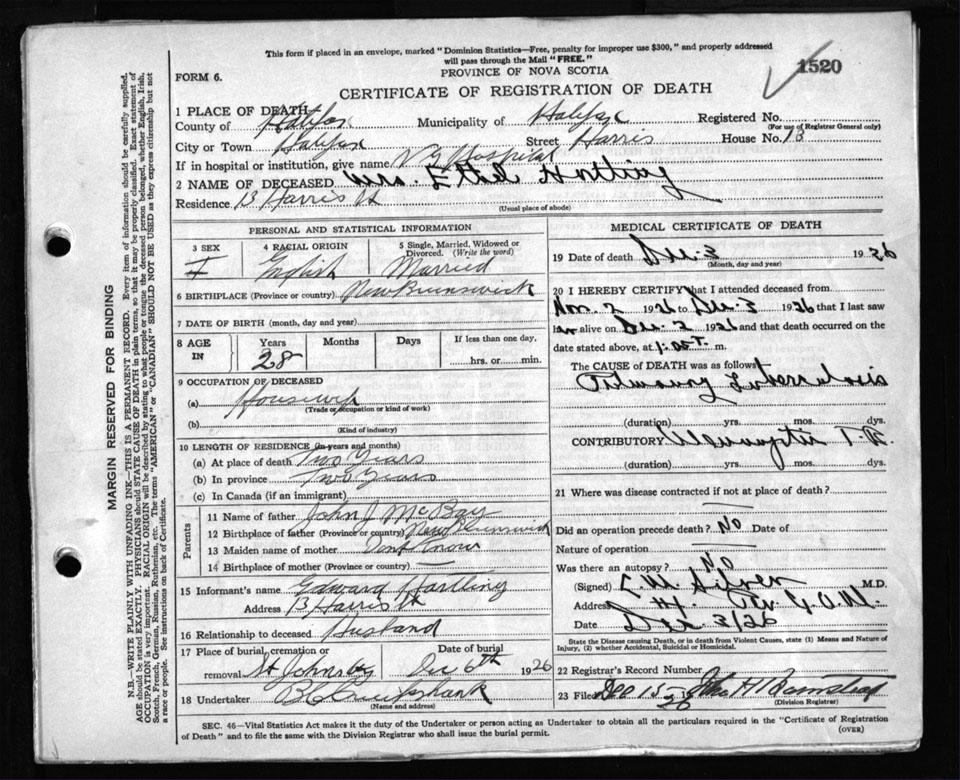 This form if placed in an envelope, marked "Dominion Statistics—Free, penalty for improper use $300," and properly addressed
will pass through the Mail "FREE."
PROVINCE OF NOVA SCOTIA
1520
FORM 6.
CERTIFICATE OF REGISTRATION OF DEATH
1 PLACE OF DEATH
County of Halifax Municipality of Halifax Registered No.
(For use of Registrar General only)
City or Town Halifax Street Harris House No. 13
If in hospital or institution, give name V G Hospital
2 NAME OF DECEASED Mrs. Ethel
Residence 13 Harris St
(Usual place of abode)
PERSONAL AND STATISTICAL INFORMATION
3 SEX 4 RACIAL ORIGIN 5 Single, Married, Widowed or Divorced. (Write the word)
F English Married
6 BIRTHPLACE (Province or country) New Brunswick
7 DATE OF BIRTH (month, day and year)
8 AGE IN Years Months Days If less than one day,
28 hrs. or min.
9 OCCUPATION OF DECEASED
(a) Housewife
(Trade or occupation or kind of work)
(b)
(Kind of industry)
10 LENGTH OF RESIDENCE (in years and months)
(a) At place of death Two Years
(b) In province Two Years
(c) In Canada (if an immigrant)
Parents
11 Name of father John J McBay
12 Birthplace of father (Province or country) New Brunswick
13 Maiden name of mother Dont Know
14 Birthplace of mother (Province or country) —
15 Informant's name Edward Hartling
Address 13 Harris St
16 Relationship to deceased Husband
17 Place of burial, cremation or Date of burial
removal St Johns Dec 6th 1926
18 Undertaker
(Name and address)
MEDICAL CERTIFICATE OF DEATH
19 Date of death Dec. 3 1926
(Month, day and year)
20 I HEREBY CERTIFY that I attended deceased from
Nov. 2 1926 to Dec 3 1926 that I last saw
her alive on Dec. 2 1926 and that death occurred on
date stated above, at m.
The CAUSE of DEATH was as follows
Pulmonary Tuberculosis
(duration) yrs. mos. dys.
CONTRIBUTORY T.B.
(duration) yrs. mos. dys.
21 Where was disease contracted if not at place of death?
—
Did an operation precede death? No Date of
Nature of operation —
Was there an autopsy? No
(Signed) M.D.
Address
Date 3/26
State the Disease causing Death, or in death from Violent Causes, state (1) Means and Nature of
Injury, (2) whether Accidental, Suicidal or Homicidal.
22 Registrar's Record Number
23 Filed Dec 15 1926
(Division Registrar)
SEC. 46—Vital Statistics Act makes it the duty of the Undertaker or person acting as Undertaker to obtain all the particulars required in the "Certificate of Registration
of Death" and to file the same with the Division Registrar who shall issue the burial permit.
(OVER)
MARGIN RESERVED FOR BINDING
N.B.—WRITE PLAINLY WITH UNFADING INK—THIS IS A PERMANENT RECORD. Every item of information should be carefully supplied.
AGE should be stated EXACTLY. PHYSICIANS should STATE CAUSE OF DEATH in plain terms, so that it may be properly classified. Exact statement of
OCCUPATION is very important. RACIAL ORIGIN will be described by stating to what people or tongue the deceased person belonged, whether English, Irish,
Scotch, French, German, Russian, Ruthenian, etc. The terms "AMERICAN" or "CANADIAN" SHOULD NOT BE USED as they express citizenship but not
a race or people. See instructions on back of Certificate.